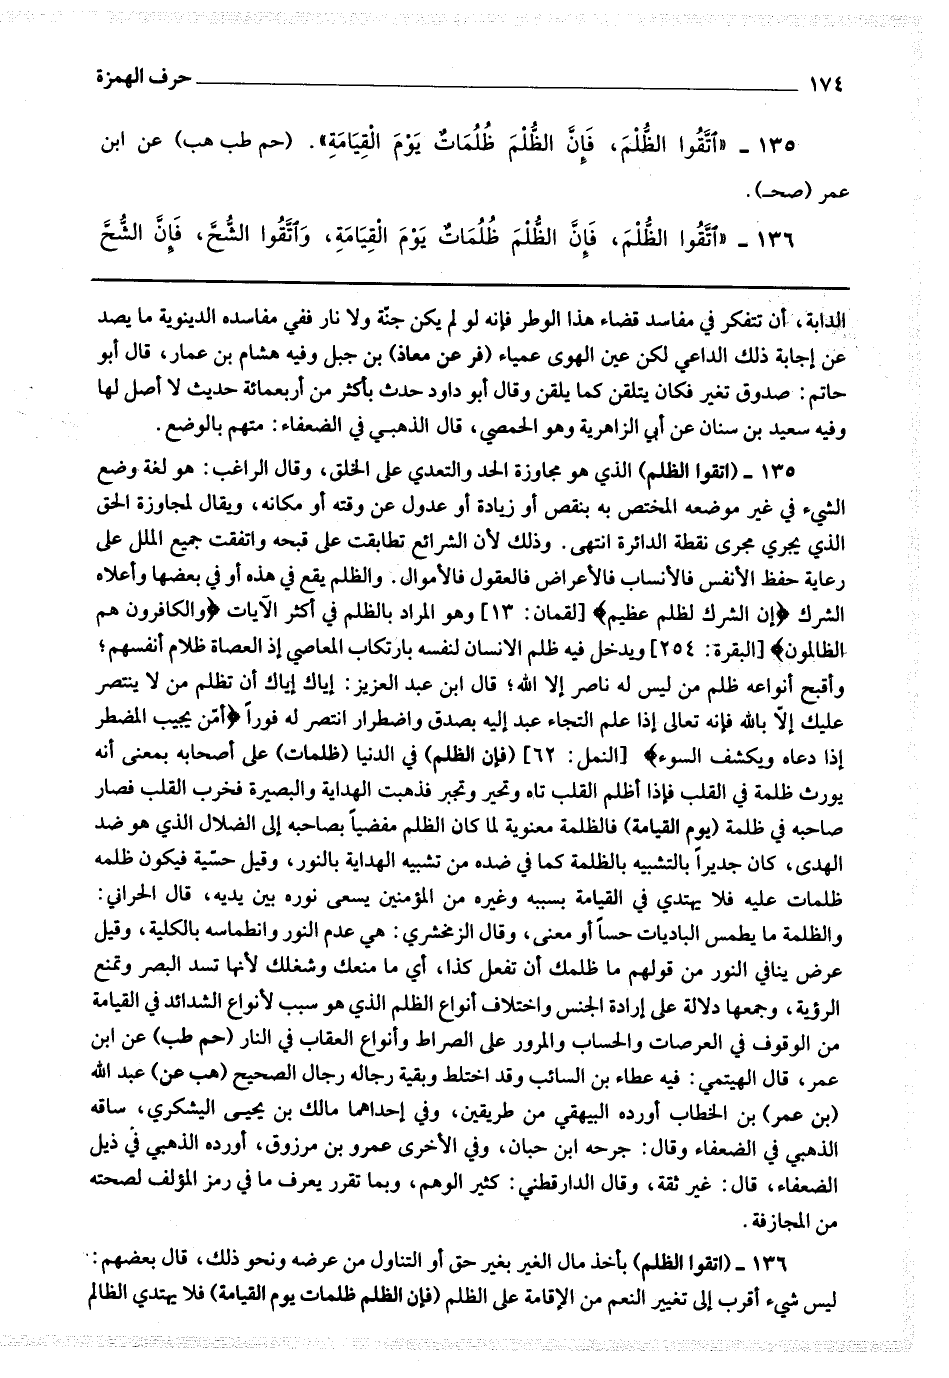 ١٧٤ ــــــــــــــــــــ حرف الهمزة
١٣٥ ـ «ٱتَّقُوا الظُّلْمَ، فَإِنَّ الظُّلْمَ ظُلُمَاتٌ يَوْمَ الْقِيَامَةِ». (حم طب هب) عن ابن
عمر (صحـ).
١٣٦ ـ «ٱتَّقُوا الظُّلْمَ، فَإِنَّ الظُّلْمَ ظُلُمَاتٌ يَوْمَ الْقِيَامَةِ، وَٱتَّقُوا الشُّحَّ، فَإِنَّ الشُّحَّ
الدابة، أن تتفكر في مفاسد قضاء هذا الوطر فإنه لو لم يكن جنّة ولا نار ففي مفاسده الدينوية ما يصد
عن إجابة ذلك الداعي لكن عين الهوى عمياء (فر عن معاذ) بن جبل وفيه هشام بن عمار، قال أبو
حاتم: صدوق تغير فكان يتلقن كما يلقن وقال أبو داود حدث بأكثر من أربعمائة حديث لا أصل لها
وفيه سعيد بن سنان عن أبي الزاهرية وهو الحمصي، قال الذهبـي في الضعفاء: متهم بالوضع.
١٣٥ ـ (اتقوا الظلم) الذي هو مجاوزة الحد والتعدي على الخلق، وقال الراغب: هو لغة وضع
الشيء في غير موضعه المختص به بنقص أو زيادة أو عدول عن وقته أو مكانه، ويقال لمجاوزة الحق
الذي يجري مجرى نقطة الدائرة انتهى. وذلك لأن الشرائع تطابقت على قبحه واتفقت جميع الملل على
رعاية حفظ الأنفس فالأنساب فالأعراض فالعقول فالأموال. والظلم يقع في هذه أو في بعضها وأعلاه
الشرك ﴿إن الشرك لظلم عظيم﴾ [لقمان: ١٣] وهو المراد بالظلم في أكثر الآيات ﴿والكافرون هم
الظالمون﴾ [البقرة: ٢٥٤] ويدخل فيه ظلم الانسان لنفسه بارتكاب المعاصي إذ العصاة ظلام أنفسهم؛
وأقبح أنواعه ظلم من ليس له ناصر إلا الله؛ قال ابن عبد العزيز: إياك إياك أن تظلم من لا ينتصر
عليك إلّا بالله فإنه تعالى إذا علم التجاء عبد إليه بصدق واضطرار انتصر له فوراً ﴿أمّن يجيب المضطر
إذا دعاه ويكشف السوء﴾ [النمل: ٦٢] (فإن الظلم) في الدنيا (ظلمات) على أصحابه بمعنى أنه
يورث ظلمة في القلب فإذا أظلم القلب تاه وتحير وتجبر فذهبت الهداية والبصيرة فخرب القلب فصار
صاحبه في ظلمة (يوم القيامة) فالظلمة معنوية لما كان الظلم مفضياً بصاحبه إلى الضلال الذي هو ضد
الهدى، كان جديراً بالتشبيه بالظلمة كما في ضده من تشبيه الهداية بالنور، وقيل حسّية فيكون ظلمه
ظلمات عليه فلا يهتدي في القيامة بسببه وغيره من المؤمنين يسعى نوره بين يديه، قال الحراني:
والظلمة ما يطمس الباديات حساً أو معنى، وقال الزمخشري: هي عدم النور وانطماسه بالكلية، وقيل
عرض ينافي النور من قولهم ما ظلمك أن تفعل كذا، أي ما منعك وشغلك لأنها تسد البصر وتمنع
الرؤية، وجمعها دلالة على إرادة الجنس واختلاف أنواع الظلم الذي هو سبب لأنواع الشدائد في القيامة
من الوقوف في العرصات والحساب والمرور على الصراط وأنواع العقاب في النار (حم طب) عن ابن
عمر، قال الهيتمي: فيه عطاء بن السائب وقد اختلط وبقية رجاله رجال الصحيح (هب عن) عبد الله
(بن عمر) بن الخطاب أورده البيهقي من طريقين، وفي إحداهما مالك بن يحيـى اليشكري، ساقه
الذهبي في الضعفاء وقال: جرحه ابن حبان، وفي الأخرى عمرو بن مرزوق، أورده الذهبي في ذيل
الضعفاء، قال: غير ثقة، وقال الدارقطني: كثير الوهم، وبما تقرر يعرف ما في رمز المؤلف لصحته
من المجازفة.
١٣٦ ـ (اتقوا الظلم) بأخذ مال الغير بغير حق أو التناول من عرضه ونحو ذلك، قال بعضهم:
ليس شيء أقرب إلى تغيير النعم من الإقامة على الظلم (فإن الظلم ظلمات يوم القيامة) فلا يهتدي الظالم